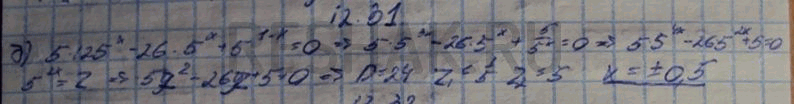 12.01
б) 5·125^x - 26·5^x + 5^(1-x) = 0 ⇒ 5·5^(3x) - 26·5^x + 5/5^x = 0 ⇒ 5·5^(4x) - 26·5^(2x) + 5 = 0
5^(2x) = z ⇒ 5z² - 26z + 5 = 0 ⇒ D = 24 z₁ = 1/5 z₂ = 5 x = ±0,5